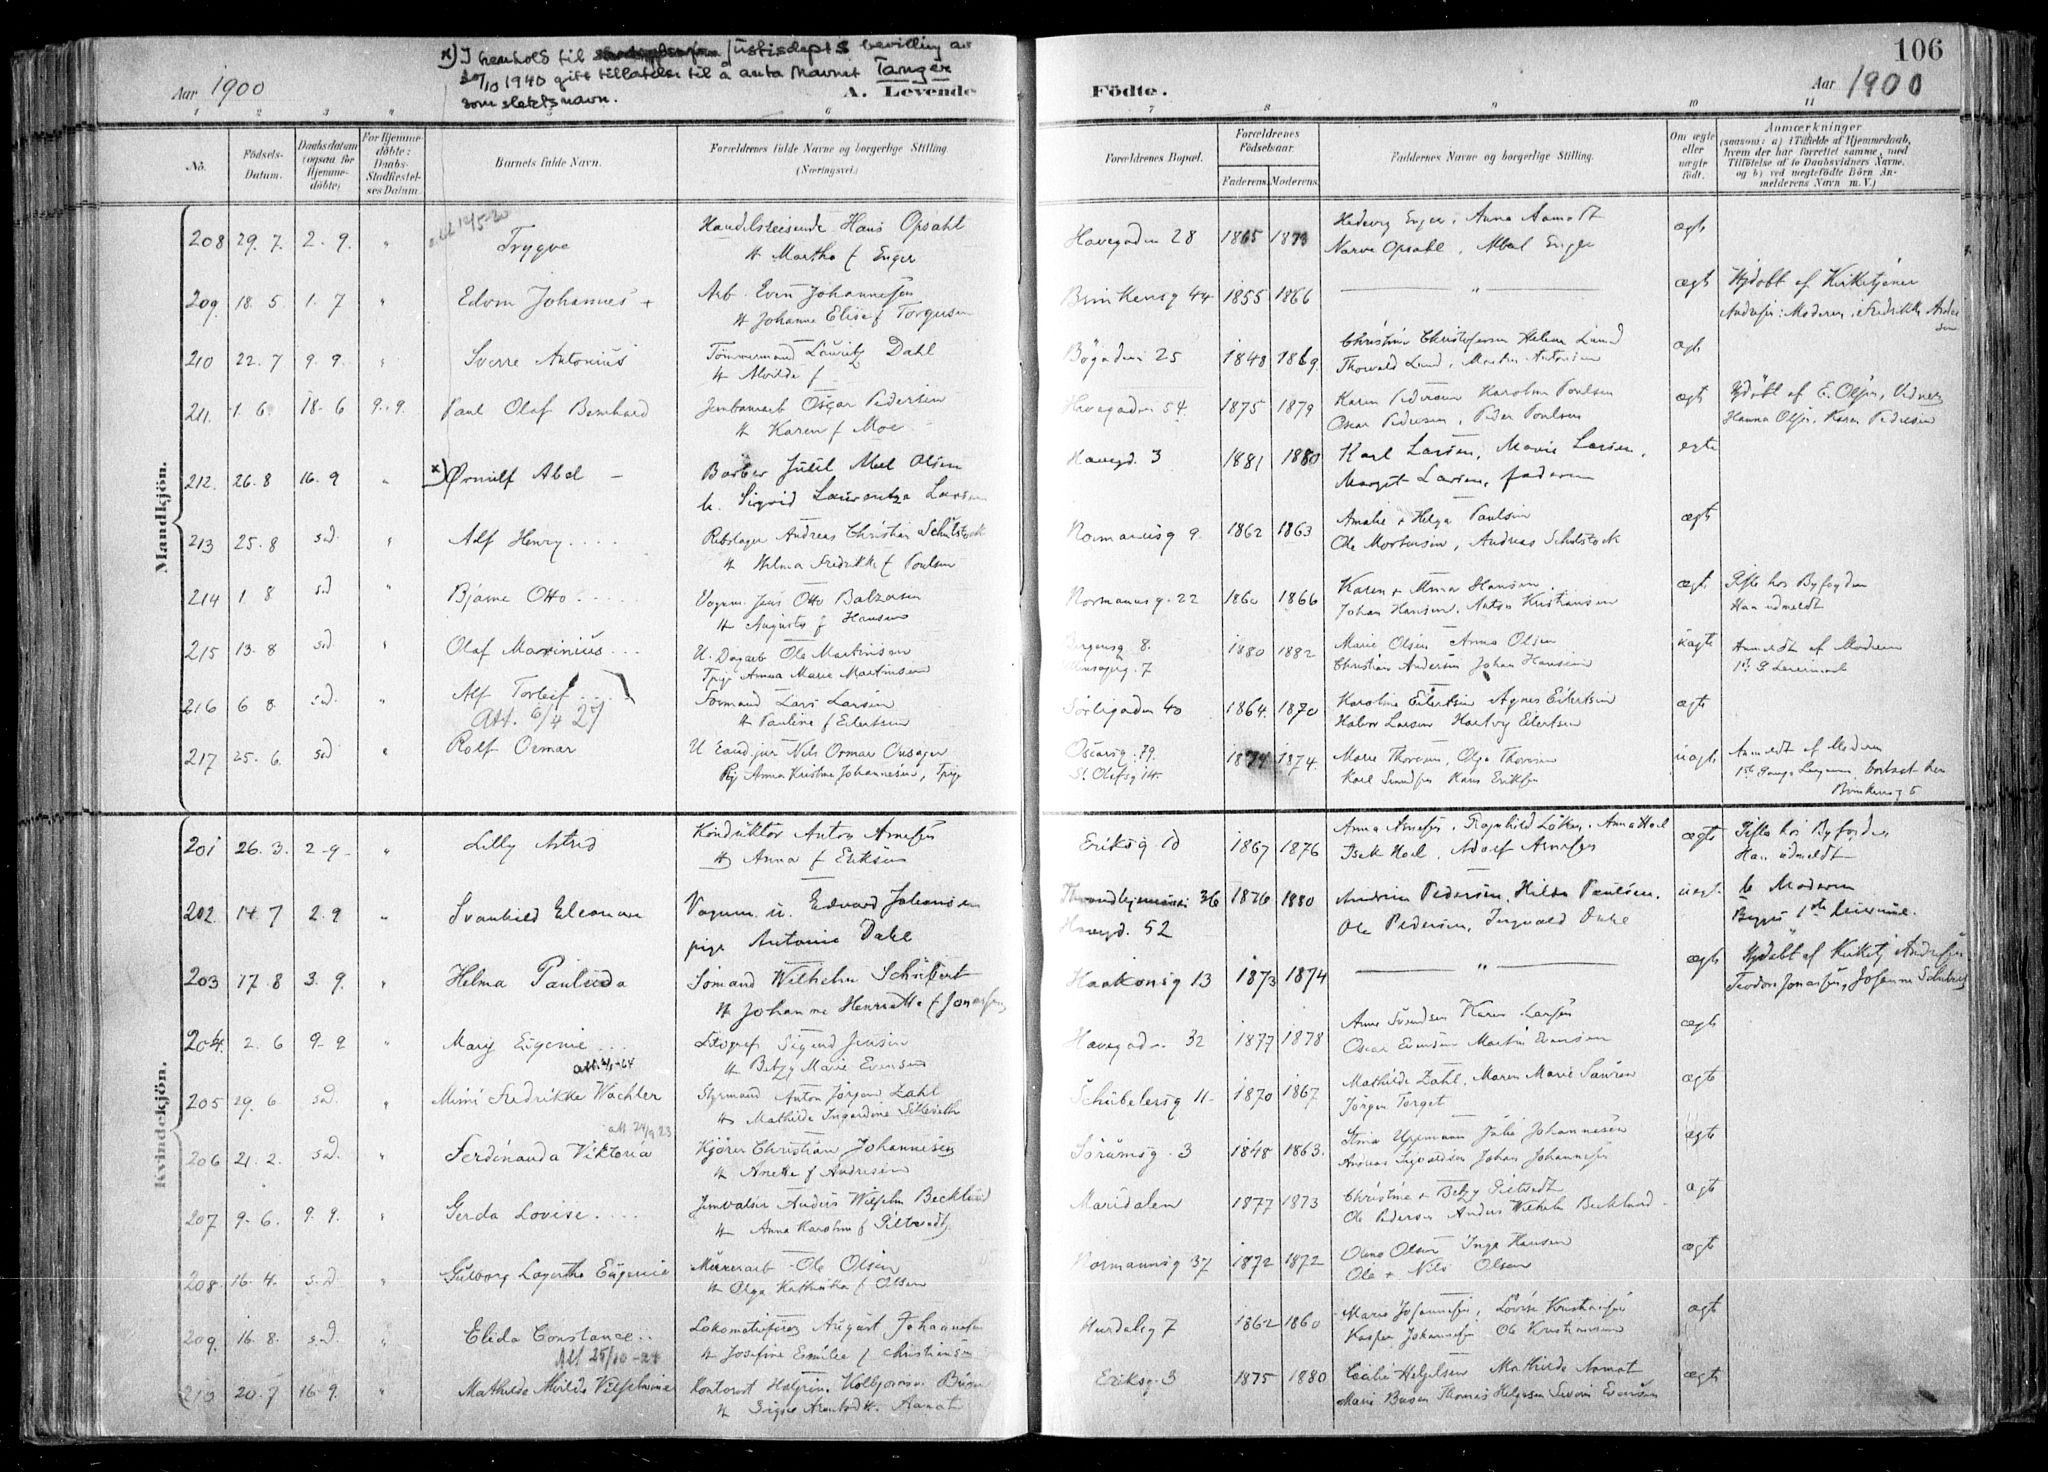 106
x) I henhold til justisdepts bevilling av
20/10 1940 gitt tillatelse til å anta navnet Tanger
som slektsnavn.
Aar 1900
A. Levende
Födte.
Aar 1900
1 2 3 4 5 6 7 8 9 10 11
No.
Födsels-
Datum.
Daabsdatum
(ogsaa for
Hjemme-
döbte)
For Hjemme-
döbte:
Daabs-
Stadfæstel-
ses Datum.
Barnets fulde Navn.
Forældrenes fulde Navne og borgerlige Stilling.
(Næringsvei.)
Forældrenes Bopæl.
Forældrenes
Födselsaar.
Faderens. Moderens.
Faddernes Navne og borgerlige Stilling.
Om ægte
eller
uægte
födt.
Anmærkninger
(saasom: a) i Tilfælde af Hjemmedaab,
hvem der har forrettet samme, med
Tilföielse af to Daabsvidners Navne,
og b) ved uægtefödte Börn An-
melderens Navn m. V.)
Mandkjön.
208 29. 7. 2. 9. " Trygve Handelsreisende Hans Opsahl Havegaden 28 1865 1873 Hedevig Enger, Anna Aamodt ægt
H Martha f Enger Narve Opsahl, Enger
209. 18. 5 1. 7 " Edvin Johannes + Arb. Even Johannessen Brinkensg 44 1855 1866 " ægt Hjdøbt af Kirketjener
H Johanne Elise f Torgersen Andersen: Moderen, Fredrikke Ander
sen
210 22. 7 9. 9. " Sverre Antonius Tømmermand Lauritz Dahl Bøgaden 25 1848 1869. Christine Christofersen Helene Lund ægt
H Alvilde f Thorvald Lund,
211. 1. 6. 18. 6 9. 9. Paul Olaf Bernhard Jernbanearb Oscar Pedersen Havegaden 54. 1875 1879 Karen Pedersen Karoline Poulsen ægt Hjdøbt af E. Olsen, Vidner
H Karen f Moe Oscar Pedersen, Peder Poulsen Hanna Olsen, Karen Pedersen
212. 26. 8 16. 9 " x) Ørnulf Abel Barber Juul Abel Olsen Havegd. 3 1881 1880 Karl Larsen, Marie Larsen, egte
h. Sigrid Laurentza Larsen Margit Larsen, faderen
213 25. 8 s.d. " Alf Henry Rebslager Andreas Christian Schulstock Normannsg 9. 1862 1863 Amalie + Helga Paulsen ægt
H Helma Fredrikke f Poulsen Ole Mortensen, Andreas Schulstock
214 1. 8 s.d " Bjarne Otto Vognm. Jens Otto Balzersen Normannsg. 22 1860 1866 Karen + Anna Hansen ægt Gifte hos Byfogden
H Augusta f Hansen Johan Hansen, Anton Kristiansen Han udmeldt
215 13. 8 s.d " Olaf Marinius U. Dagarb Ole Martinsen 8. 1880 1882 Marie Olsen Anna Olsen uægte Anmeldt af Moderen
Pige Anna Marie Martinsen 7 Christian Andersen Johan Hansen 1ste G Leiermaal
216 6 8 s.d. " Alf Torleif Sømand Lars Larsen Sørligaden 40 1864. 1870 Karoline Eilertsen Agnes Eilertsen ægt
Att. 6/4 27 H Pauline f Eilertsen Halvor Larsen Hartvig Eilertsen
217 25. 6. s.d " Rolf Ormar U Cand. jur Nils Ormar Onsager Oscarsg. 79. 1874. Marie Thoresen, Olga Thoresen uægt Anmeldt af Moderen
Pig Anna Kristine Johannesen, St. Olefsg 14. Karl Hans Eriksen 1ste Gangs Bortsat hos
Brinkensg 6
Kvindekjön.
201 26. 3. 2. 9. " Lilly Astrid Konduktør Anton Arnesen Eriksg 10 1867 1876 Anna Arnesen, Ragnhild Løken, Anna Hoel ægte Gifte hos Byfogden
H Anna f Eriksen Isak Hoel, Adolf Arnesen Han udmeldt
202. 14. 7 2. 9 " Svanhild Eleonore Vognm. u. Edvard Johansen Throndhjemsvei 36 1876 1880 Andrine Pedersen, Hilda Paulsen, uægt. h Moderen
pige Antonie Dahl Havegd. 52 Ole Pedersen, Ingvald Begges 1ste leiermaal.
203 17. 8 3. 9. " Helma Paulida Sømand Wilhelm Schubert Haakonsg 13 1873 1874 " ægt Hjdøbt af Kirketj Andersen
H Johanne Henriette f Jonassen Teodor Jonassen, Johanne Schubert
204. 2. 6 9. 9 " Mary Eugenie Litograf Sigurd Jensen Havegaden 32 1877 1878 Anne Svendsen Karen Larsen ægte
H Betzy Marie Evensen Oscar Evensen Martin Evensen
205 29. 6 s.d. " Mimi Fredrikke Wachler Styrmand Anton Jørgen Zahl Schübelersg 11. 1870 1867 Mathilde Zahl, Maren Marie ægte
H Mathilde Ingardine Jörgen Torget
206 21. 2. s.d. " Ferdinanda Viktoria Kjører Christian Johannesen Sörumsg. 3 1848 1863. Stina Julie Johannesen ægte
att 24/9 23 H Anette f Andresen Andreas Johan Johannesen
207 9. 6. 9. 9. " Gerda Lovise Jernvalser Anders Wilhelm Becklund Maridalen 1877 1873 Christine + Betzy ægt
H Anna Karoline f Ole Pedersen Anders Wilhelm Becklund
208. 16. 4. s.d. " Gulborg Lagertha Eugenie Murerarb. Ole Olsen Normannsg 37 1872 1872 Olsen Inga Hansen ægte
H Olga Kathinka f Olsen Ole + Nils Olsen
209. 16. 8. s.d. " Elida Constance Lokomotivfører August Johannesen Hurdalsg 7 1862 1860 Marie Johannesen, Lovise Kristiansen ægt
Att 25/10-24 H Josefine Emilie f Christiansen Kasper Johannesen Ole Kristiansen
210 20. 7 16. 9. " Mathilde Alvilde Vilhelmine Kontorist Eriksg. 3 1875 1880 Helgesen Mathilde Aamot ægte
H Aamot Marie Thomas Helgesen Evensen